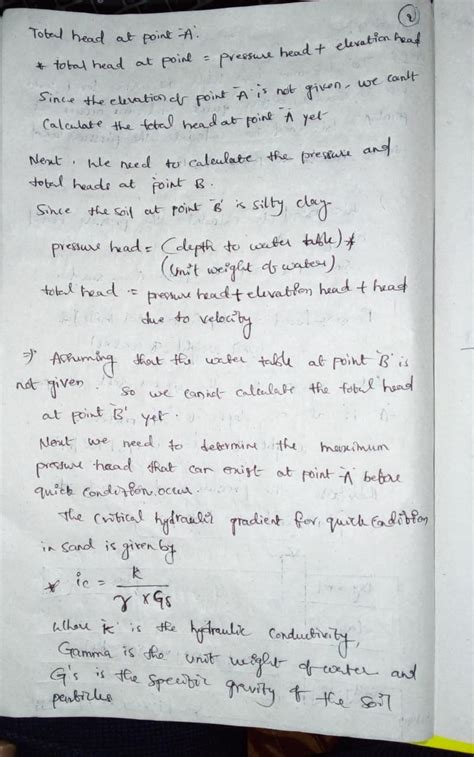 2
Total head at point 'A'.
* total head at point = pressure head + elevation head
Since the elevation of point 'A' is not given, we can't
Calculate the total head at point 'A' yet
Next, We need to calculate the pressure and
total heads at point B.
Since the soil at point 'B' is silty clay
pressure head = (depth to water table) *
(Unit weight of water)
total head = pressure head + elevation head + head
due to velocity
=> Assuming that the water table at point 'B' is
not given. So we cannot calculate the total head
at point 'B', yet.
Next we need to determine the maximum
pressure head that can exist at point 'A' before
quick condition occur.
The critical hydraulic gradient for quick condition
in sand is given by
* ic = k / γ x Gs
Where 'k' is the hydraulic conductivity,
Gamma is the unit weight of water and
G's is the specific gravity of the soil
particles